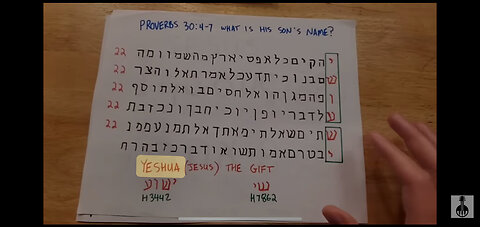 PROVERBS 30:4-7 WHAT IS HIS SON'S NAME?
22 י הקים כל אפסי ארץ מה שמו ומה
22 ש ם בנו כי תדע כל אמרת אלוה צר
22 ו פה מגן הוא לחסים בו אל תוסף
22 ע ל דבריו פן יוכיח בך ונכזבת
22 ש תים שאלתי מאתך אל תמנע ממנ
י בטרם אמות שוא ודבר כזב הרח
YESHUA (JESUS) THE GIFT
ישוע שי
H3442 H7862